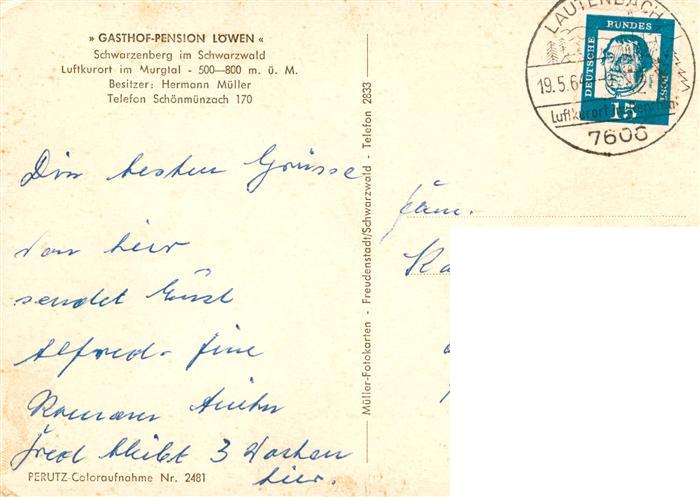 » GASTHOF-PENSION LÖWEN «
Schwarzenberg im Schwarzwald
Luftkurort im Murgtal - 500—800 m. ü. M.
Besitzer: Hermann Müller
Telefon Schönmünzach 170
Die besten Grüsse
von hier
sendet
Alfred
Fred bleibt 3 Wochen
hier.
PERUTZ-Coloraufnahme Nr. 2481
Müller-Fotokarten - Freudenstadt/Schwarzwald - Telefon 2833
LAUTENBACH
19.5.64
Luftkurort
7606
DEUTSCHE
BUNDES
POST
15
Fam.